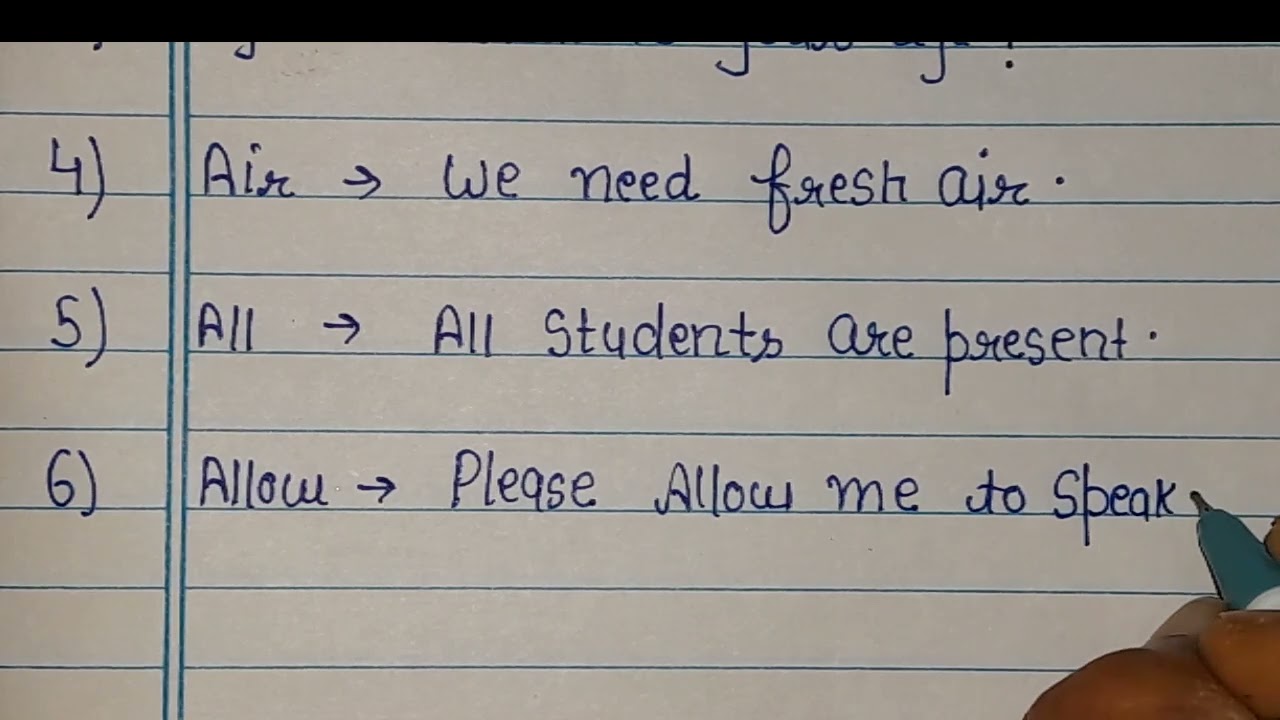 4) Air → We need fresh air.
5) All → All Students are present.
6) Allow → Please Allow me to Speak